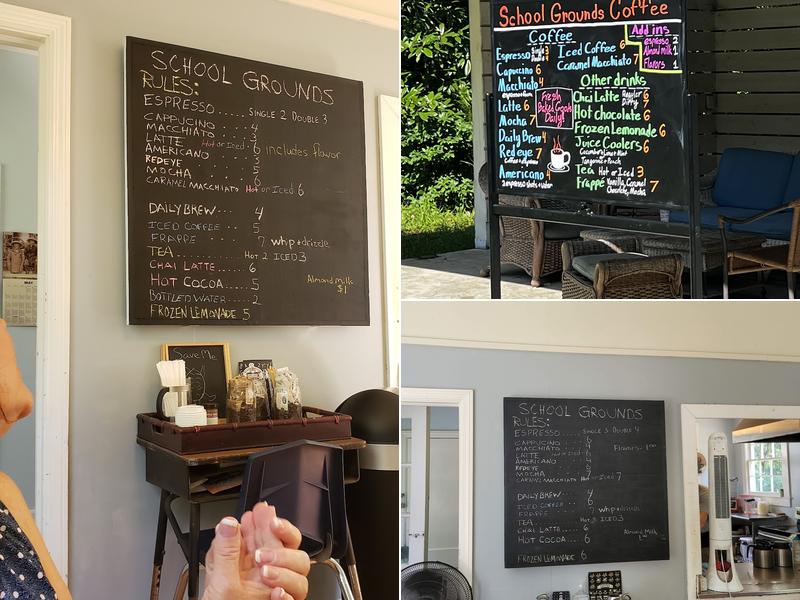 SCHOOL GROUNDS
RULES:
ESPRESSO ..... SINGLE 2 DOUBLE 3
CAPPUCINO .... 4
MACCHIATO .... 3
LATTE Hot or Iced . 6 includes flavor
AMERICANO .... 3
REDEYE .... 5
MOCHA .... 6
CARAMEL MACCHIATO Hot or Iced 6
DAILY BREW .... 4
ICED COFFEE .... 5
FRAPPE .... 7 whip + drizzle
TEA .... Hot 2 ICED 3
CHAI LATTE .... 6
HOT COCOA .... 5
Almond Milk
$1
BOTTLED WATER .... 2
FROZEN LEMONADE 5
Save Me
MAY
School Grounds Coffee
Coffee
Espresso Single 3
Double 4
Cappucino 6
Macchiato 4
Latte 6
Mocha 7
Daily Brew 4
Red eye 7
Americano 4
Iced Coffee 6
Caramel Macchiato 7
Add ins
espresso 2
Almond milk 1
Flavors 1
Fresh
Baked Goods
Daily!
Other drinks
Chai Latte Regular 6
Dirty 7
Hot chocolate 6
Frozen Lemonade 6
Juice Coolers 6
Tea Hot or Iced 3
Frappé Vanilla, Caramel 7
Chocolate, Mocha
SCHOOL GROUNDS
RULES:
ESPRESSO .... SINGLE 3 DOUBLE 4
CAPPUCINO .... 6
MACCHIATO .... 4
Flavors 1.00
LATTE Hot or Iced 6
AMERICANO
REDEYE
MOCHA
CARAMEL MACCHIATO Hot or Iced 7
DAILY BREW .... 4
ICED COFFEE .... 6
FRAPPE .... 7 whip + drizzle
TEA .... Hot 3 ICED 3
CHAI LATTE .... 6
Almond Milk
HOT COCOA .... 6
FROZEN LEMONADE 6